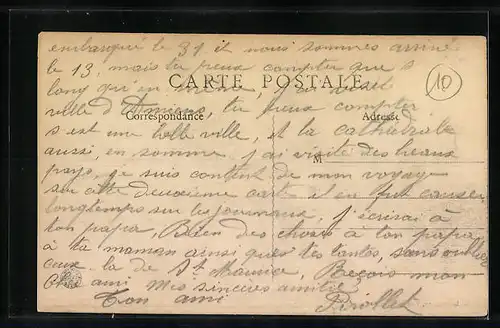 embarqué le 31 il nous sommes arrivé
le 13, mais tu peux compter que s
long qui en
CARTE POSTALE
10
ville d'Amiens, tu peux compter
Correspondance
Adresse
s est une belle ville, et la cathédrale
aussi, en somme, j'ai visité des beaux
M
pays, je suis content de mon voyage
sur cette deuxième carte il en fut causer
longtemps sur les journaux, j'écrirai à
ton papa, Rien des choses à ton papa
à ta maman ainsi que tes tantes, sans oublier
ceux-là de St Maurice, Reçois mon
cher ami Mes sincères amitiés
Ton ami